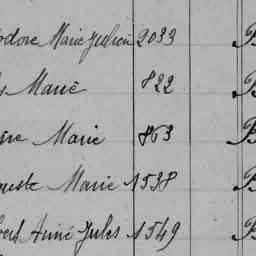 odore Marie Julien 2033 B
s Marie 822 B
re Marie 863 B
uste Marie 1538 B
bert Aimé Jules 1549 B